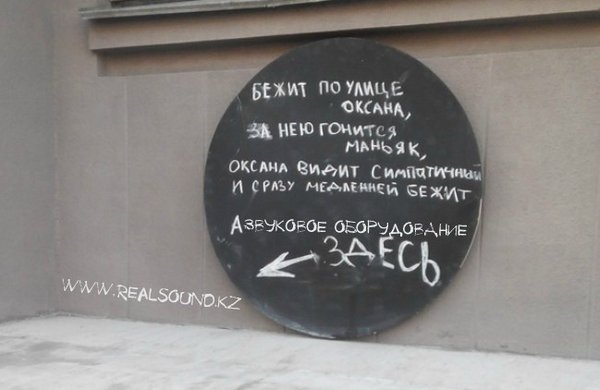 БЕЖИТ ПО УЛИЦЕ
ОКСАНА,
ЗА НЕЮ ГОНИТСЯ
МАНЬЯК,
ОКСАНА ВИДИТ СИМПАТИЧНЫЙ
И СРАЗУ МЕДЛЕННЕЙ БЕЖИТ
А ЗВУКОВОЕ ОБОРУДОВАНИЕ
ЗДЕСЬ
WWW.REALSOUND.KZ